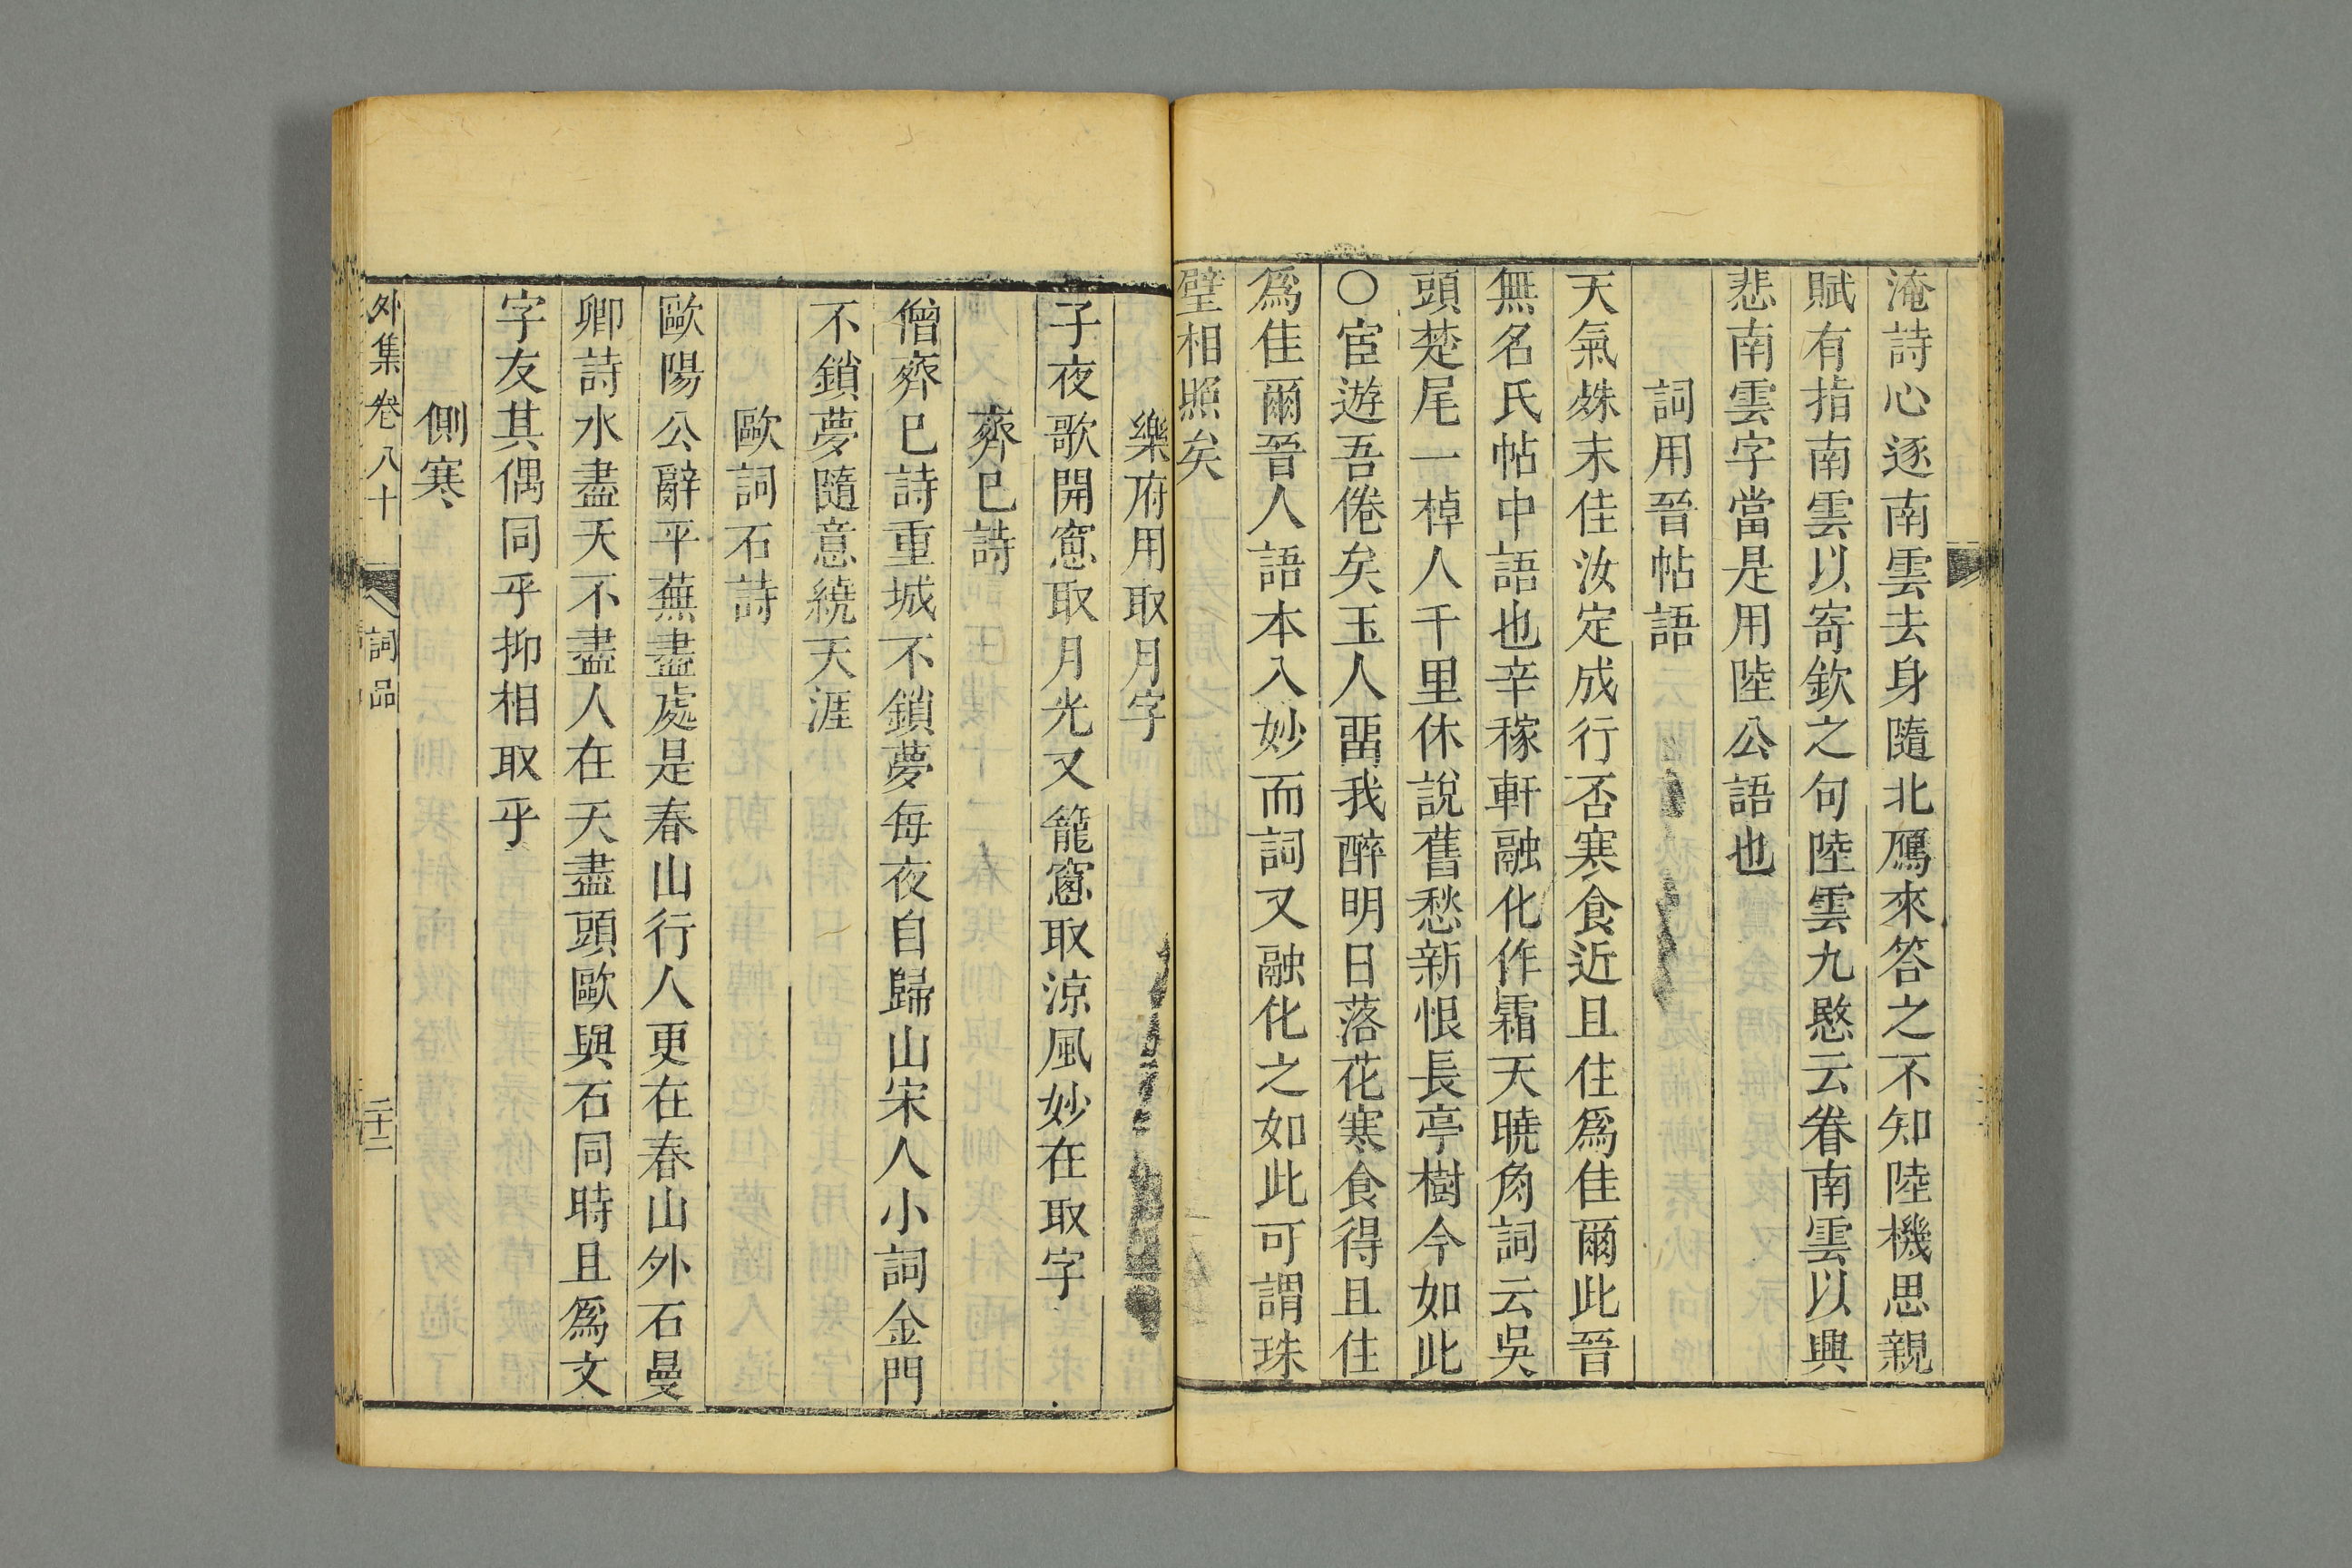 淹詩心逐南雲去身隨北鴈來答之不知陸機思親
賦有指南雲以寄欽之句陸雲九愍云眷南雲以興
悲南雲字當是用陸公語也
詞用晉帖語
天氣殊未佳汝定成行否寒食近且住爲佳爾此晉
無名氏帖中語也辛稼軒融化作霜天曉角詞云吳
頭楚尾一棹人千里休說舊愁新恨長亭樹今如此
○宦遊吾倦矣玉人畱我醉明日落花寒食得且住
爲佳爾晉人語本入妙而詞又融化之如此可謂珠
璧相照矣
樂府用取月字
子夜歌開窻取月光又籠窻取涼風妙在取字
齊已詩
僧齊已詩重城不鎖夢每夜自歸山宋人小詞金門
不鎖夢隨意繞天涯
歐詞石詩
歐陽公辭平蕪盡處是春山行人更在春山外石曼
卿詩水盡天不盡人在天盡頭歐與石同時且爲文
字友其偶同乎抑相取乎
側寒
外集卷八十 詞品 二十二